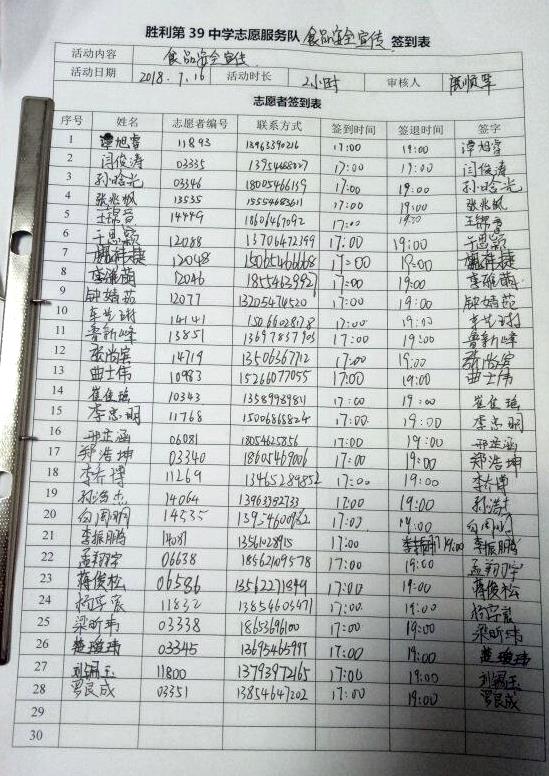 胜利第39中学志愿服务队 食品安全宣传 签到表
活动内容 食品安全宣传
活动日期 2018.7.16 活动时长 2小时 审核人
志愿者签到表
序号 姓名 志愿者编号 联系方式 签到时间 签退时间 签字
1 谭旭睿 11893 17:00 19:00 谭旭睿
2 闫俊涛 03335 17:00 19:00 闫俊涛
3 孙晗光 03346 17:00 19:00 孙晗光
4 张兆枫 13535 17:00 19:00 张兆枫
5 14449 17:00
6 于思颖 12088 13706472399 17:00 19:00 于思颖
7 12048 15065466668 17:00 19:00
8 李雅萌 12046 17:00 19:00 李雅萌
9 钟婧茹 12077 13205474520 17:00 19:00 钟婧茹
10 14141 17:00 19:00
11 鲁新峰 13851 13697857905 17:00 19:00 鲁新峰
12 张尚宾 14719 13506367712 17:00 19:00 张尚宾
13 曲士伟 10983 15266077055 17:00 19:00 曲士伟
14 崔佳瑶 10343 17:00 19:00 崔佳瑶
15 李忠明 11768 15006868824 17:00 19:00 李忠明
16 邢芷涵 06081 17:00 19:00 邢芷涵
17 郑浩坤 03340 18605469006 17:00 19:00 郑浩坤
18 李乔博 11269 13465289852 17:00 19:00 李乔博
19 孙浩杰 14064 13963352733 17:00 19:00 孙浩杰
20 14535 17:00 19:00
21 李振鹏 17:00 19:00 李振鹏
22 孟翔宇 06638 18562109578 17:00 19:00 孟翔宇
23 蒋俊松 06586 13562271899 17:00 19:00 蒋俊松
24 杨宇宸 11832 13854605471 17:00 19:00 杨宇宸
25 梁昕玮 03338 17:00 19:00 梁昕玮
26 03345 17:00 19:00
27 刘锡玉 11800 13793972165 17:00 19:00 刘锡玉
28 罗良成 03351 13854647202 17:00 19:00 罗良成
29
30